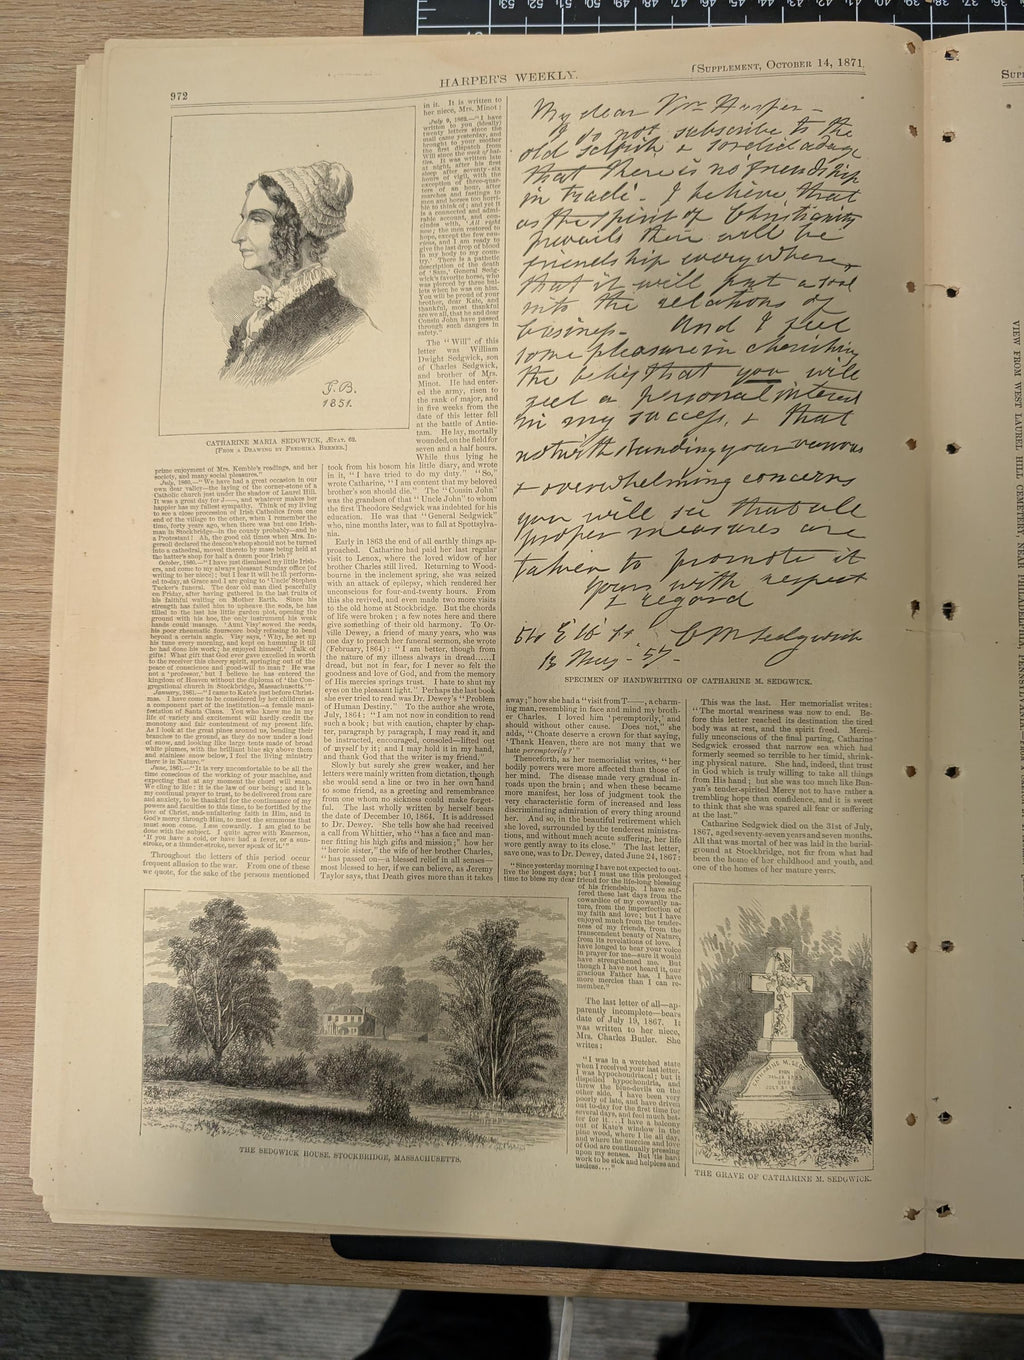 972
HARPER'S WEEKLY.
[SUPPLEMENT, OCTOBER 14, 1871.
F.B.
1851.
CATHARINE MARIA SEDGWICK, ÆTAT. 62.
[FROM A DRAWING BY FREDRIKA BREMER.]
prime enjoyment of Mrs. Kemble's readings, and her
society, and many social pleasures."
July, 1860.—"We have had a great occasion in our
own dear valley—the laying of the corner-stone of a
Catholic church just under the shadow of Laurel Hill.
It was a great day for J——, and whatever makes her
happier has my fullest sympathy. Think of my living
to see a close procession of Irish Catholics from one
end of the village to the other, when I remember the
time, forty years ago, when there was but one Irish-
man in Stockbridge—in the county probably—and he
a Protestant! Ah, the good old times when Mrs. In-
gersoll declared the deacon's shop should not be turned
into a cathedral, moved thereto by mass being held at
the hatter's shop for half a dozen poor Irish!"
October, 1860.—"I have just dismissed my little Irish-
ers, and come to my always pleasant Sunday office (of
writing to her niece); but I fear it will be ill perform-
ed to-day, as Grace and I are going to 'Uncle' Stephen
Tucker's funeral. The dear old man died peacefully
on Friday, after having gathered in the last fruits of
his faithful waiting on Mother Earth. Since his
strength has failed him to upheave the sods, he has
tilled to the last his little garden plot, opening the
ground with his hoe, the only instrument his weak
hands could manage. 'Aunt Viny' moved the seeds,
his poor rheumatic fourscore body refusing to bend
beyond a certain angle. Viny says, 'Why, he set up
his tune every morning, and kept on humming it till
he had done his work; he enjoyed himself.' Talk of
gifts! What gift that God ever gave excelled in worth
to the receiver this cheery spirit, springing out of the
peace of conscience and good-will to man? He was
not a 'professor,' but I believe he has entered the
kingdom of Heaven without the diploma of 'the Con-
gregational church in Stockbridge, Massachusetts.'"
January, 1861.—"I came to Kate's just before Christ-
mas. I have come to be considered by her children as
a component part of the institution—a female mani-
festation of Santa Claus. You who knew me in my
life of variety and excitement will hardly credit the
monotony and fair contentment of my present life.
As I look at the great pines around us, bending their
branches to the ground, as they do now under a load
of snow, and looking like large tents made of broad
white plumes, with the brilliant blue sky above them
and stainless snow below, I feel the living ministry
there is in Nature."
June, 1861.—"It is very uncomfortable to be all the
time conscious of the working of your machine, and
expecting that at any moment the chord will snap.
We cling to life: it is the law of our being; and it is
my continual prayer to trust, to be delivered from care
and anxiety, to be thankful for the continuance of my
powers and faculties to this time, to be fortified by the
love of Christ, and unfaltering faith in Him, and in
God's mercy through Him, to meet the summons that
must soon come. I am cowardly. I am glad to be
done with the subject. I quite agree with Emerson,
'If you have a cold, or have a fever, or a sun-
stroke, or a thunder-stroke, never speak of it.'"
Throughout the letters of this period occur
frequent allusion to the war. From one of these
we quote, for the sake of the persons mentioned
in it. It is written to
her niece, Mrs. Minot:
July 9, 1862.—"I have
written to you (ideally)
twenty letters since the
mail came yesterday, and
brought to your mother
the first dispatch from
Will since the week of bat-
tles. It was written late
at night, after his first
sleep after seventy-six
hours of vigil, with the
exception of three-quar-
ters of an hour, after
marches and fastings to
men and horses too horri-
ble to think of; and yet it
is a connected and admi-
rable account, and con-
cludes with, 'All right
now; the men restored to
hope, except the few cau-
tious, and I am ready to
give the last drop of blood
in my body to my coun-
try.' There is a pathetic
description of the death
of 'Sam,' General Sedg-
wick's favorite horse, who
was pierced by three bul-
lets when he was on him.
You will be proud of your
brother, dear Kate, and
thankful, most thankful
are we all, that he and dear
Cousin John have passed
through such dangers in
safety."
The "Will" of this
letter was William
Dwight Sedgwick, son
of Charles Sedgwick,
and brother of Mrs.
Minot. He had enter-
ed the army, risen to
the rank of major, and
in five weeks from the
date of this letter fell
at the battle of Antie-
tam. He lay, mortally
wounded, on the field for
seven and a half hours.
While thus lying he
took from his bosom his little diary, and wrote
in it, "I have tried to do my duty." "So,"
wrote Catharine, "I am content that my beloved
brother's son should die." The "Cousin John"
was the grandson of that "Uncle John" to whom
the first Theodore Sedgwick was indebted for his
education. He was that "General Sedgwick"
who, nine months later, was to fall at Spottsylva-
nia.
Early in 1863 the end of all earthly things ap-
proached. Catharine had paid her last regular
visit to Lenox, where the loved widow of her
brother Charles still lived. Returning to Wood-
bourne in the inclement spring, she was seized
with an attack of epilepsy, which rendered her
unconscious for four-and-twenty hours. From
this she revived, and even made two more visits
to the old home at Stockbridge. But the chords
of life were broken; a few notes here and there
give something of their old harmony. To Or-
ville Dewey, a friend of many years, who was
one day to preach her funeral sermon, she wrote
(February, 1864): "I am better, though from
the nature of my illness always in dread......I
dread, but not in fear, for I never so felt the
goodness and love of God, and from the memory
of His mercies springs trust. I hate to shut my
eyes on the pleasant light." Perhaps the last book
she ever tried to read was Dr. Dewey's "Problem
of Human Destiny." To the author she wrote,
July, 1864: "I am not now in condition to read
such a book; but with caution, chapter by chap-
ter, paragraph by paragraph, I may read it, and
be instructed, encouraged, consoled—lifted out
of myself by it; and I may hold it in my hand,
and thank God that the writer is my friend."
Slowly but surely she grew weaker, and her
letters were mainly written from dictation, though
she would send a line or two in her own hand
to some friend, as a greeting and remembrance
from one whom no sickness could make forget-
ful. The last wholly written by herself bears
the date of December 10, 1864. It is addressed
to Dr. Dewey. She tells how she had received
a call from Whittier, who "has a face and man-
ner fitting his high gifts and mission;" how her
"heroic sister," the wife of her brother Charles,
"has passed on—a blessed relief in all senses—
most blessed to her, if we can believe, as Jeremy
Taylor says, that Death gives more than it takes
My dear Mr. Harper—
I do not subscribe to the
old selfish & sordid adage
that there is no friendship
in trade. I believe that
as the spirit of Christianity
prevails there will be
friendship everywhere,
that it will put a soul
into the relations of
business. And I feel
some pleasure in cherishing
the belief that you will
feel a personal interest
in my success, & that
notwithstanding your various
& overwhelming concerns
you will see that all
proper measures are
taken to promote it
Yours with respect
& regard
C M Sedgwick
13 May—57—
SPECIMEN OF HANDWRITING OF CATHARINE M. SEDGWICK.
away;" how she had a "visit from T——, a charm-
ing man, resembling in face and mind my broth-
er Charles. I loved him 'peremptorily,' and
should without other cause. Does not," she
adds, "Choate deserve a crown for that saying,
'Thank Heaven, there are not many that we
hate peremptorily?'"
Thenceforth, as her memorialist writes, "her
bodily powers were more affected than those of
her mind. The disease made very gradual in-
roads upon the brain; and when these became
more manifest, her loss of judgment took the
very characteristic form of increased and less
discriminating admiration of every thing around
her. And so, in the beautiful retirement which
she loved, surrounded by the tenderest ministra-
tions, and without much acute suffering, her life
wore gently away to its close." The last letter,
save one, was to Dr. Dewey, dated June 24, 1867:
"Since yesterday morning I have not expected to out-
live the longest days; but I must use this prolonged
time to bless my dear friend for the life-long blessing
of his friendship. I have suf-
fered these last days from the
cowardice of my cowardly na-
ture, from the imperfection of
my faith and love; but I have
enjoyed much from the tender-
ness of my friends, from the
transcendent beauty of Nature,
from its revelations of love. I
have longed to hear your voice
in prayer for me—sure it would
have strengthened me. But
though I have not heard it, our
gracious Father has. I have
more mercies than I can re-
member."
The last letter of all—ap-
parently incomplete—bears
date of July 19, 1867. It
was written to her niece,
Mrs. Charles Butler. She
writes:
"I was in a wretched state
when I received your last letter.
I was hypochondriacal; but it
dispelled hypochondria, and
threw the blue-devils on the
other side. I have been very
poorly of late, and have driven
out to-day for the first time for
several days, and feel much better
for it....I have a balcony
out of Kate's window in the
wild wood, where I lie all day,
and where the mercies and love
of God are continually pressing
upon my senses. But 'tis hard
work to be sick and helpless and
useless...."
This was the last. Her memorialist writes:
"The mortal weariness was now to end. Be-
fore this letter reached its destination the tired
body was at rest, and the spirit freed. Merci-
fully unconscious of the final parting, Catharine
Sedgwick crossed that narrow sea which had
formerly seemed so terrible to her timid, shrink-
ing physical nature. She had, indeed, that trust
in God which is truly willing to take all things
from His hand; but she was too much like Bun-
yan's tender-spirited Mercy not to have rather a
trembling hope than confidence, and it is sweet
to think that she was spared all fear or suffering
at the last."
Catharine Sedgwick died on the 31st of July,
1867, aged seventy-seven years and seven months.
All that was mortal of her was laid in the burial-
ground at Stockbridge, not far from what had
been the home of her childhood and youth, and
one of the homes of her mature years.
THE SEDGWICK HOUSE, STOCKBRIDGE, MASSACHUSETTS.
CATHARINE M. SEDG
DIED
JULY 31
THE GRAVE OF CATHARINE M. SEDGWICK.
VIEW FROM WEST LAUREL HILL CEMETERY, NEAR PHILADELPHIA, PENNSYLVANIA.
53 52 51 50 49 48 47 46 45 44 43 42 41 40 39 38 37 36 35